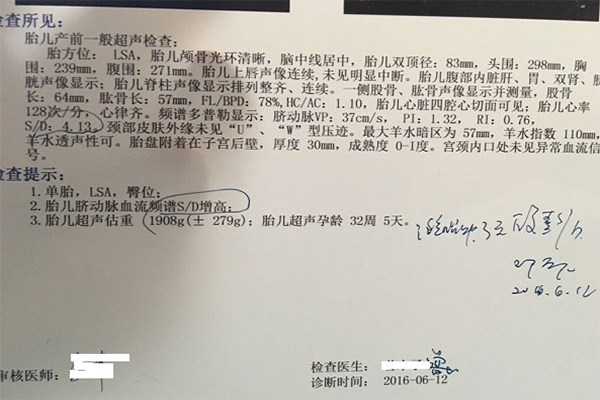 检查所见:
胎儿产前一般超声检查:
胎方位: LSA, 胎儿颅骨光环清晰, 脑中线居中, 胎儿双顶径: 83mm, 头围: 298mm, 胸
围: 239mm, 腹围: 271mm。胎儿上唇声像连续, 未见明显中断。胎儿腹部内脏肝、胃、双肾、膀
胱声像显示; 胎儿脊柱声像显示排列整齐、连续。一侧股骨、肱骨声像显示并测量, 股骨
长: 64mm, 肱骨长: 57mm, FL/BPD: 78%, HC/AC: 1.10, 胎儿心脏四腔心切面可见; 胎儿心率
128次/分, 心律齐。频谱多普勒显示: 脐动脉VP: 37cm/s, PI: 1.32, RI: 0.76,
S/D: 4.13。颈部皮肤外缘未见“U”、“W”型压迹。最大羊水暗区为 57mm, 羊水指数 110mm,
羊水透声性可。胎盘附着在子宫后壁, 厚度 30mm, 成熟度 0-I度。宫颈内口处未见异常血流信
号。
检查提示:
1. 单胎, LSA, 臀位;
2. 胎儿脐动脉血流频谱S/D增高;
3. 胎儿超声估重 1908g(± 279g); 胎儿超声孕龄 32周 5天。
S/D
2016.6.12
审核医师:
检查医生:
诊断时间: 2016-06-12